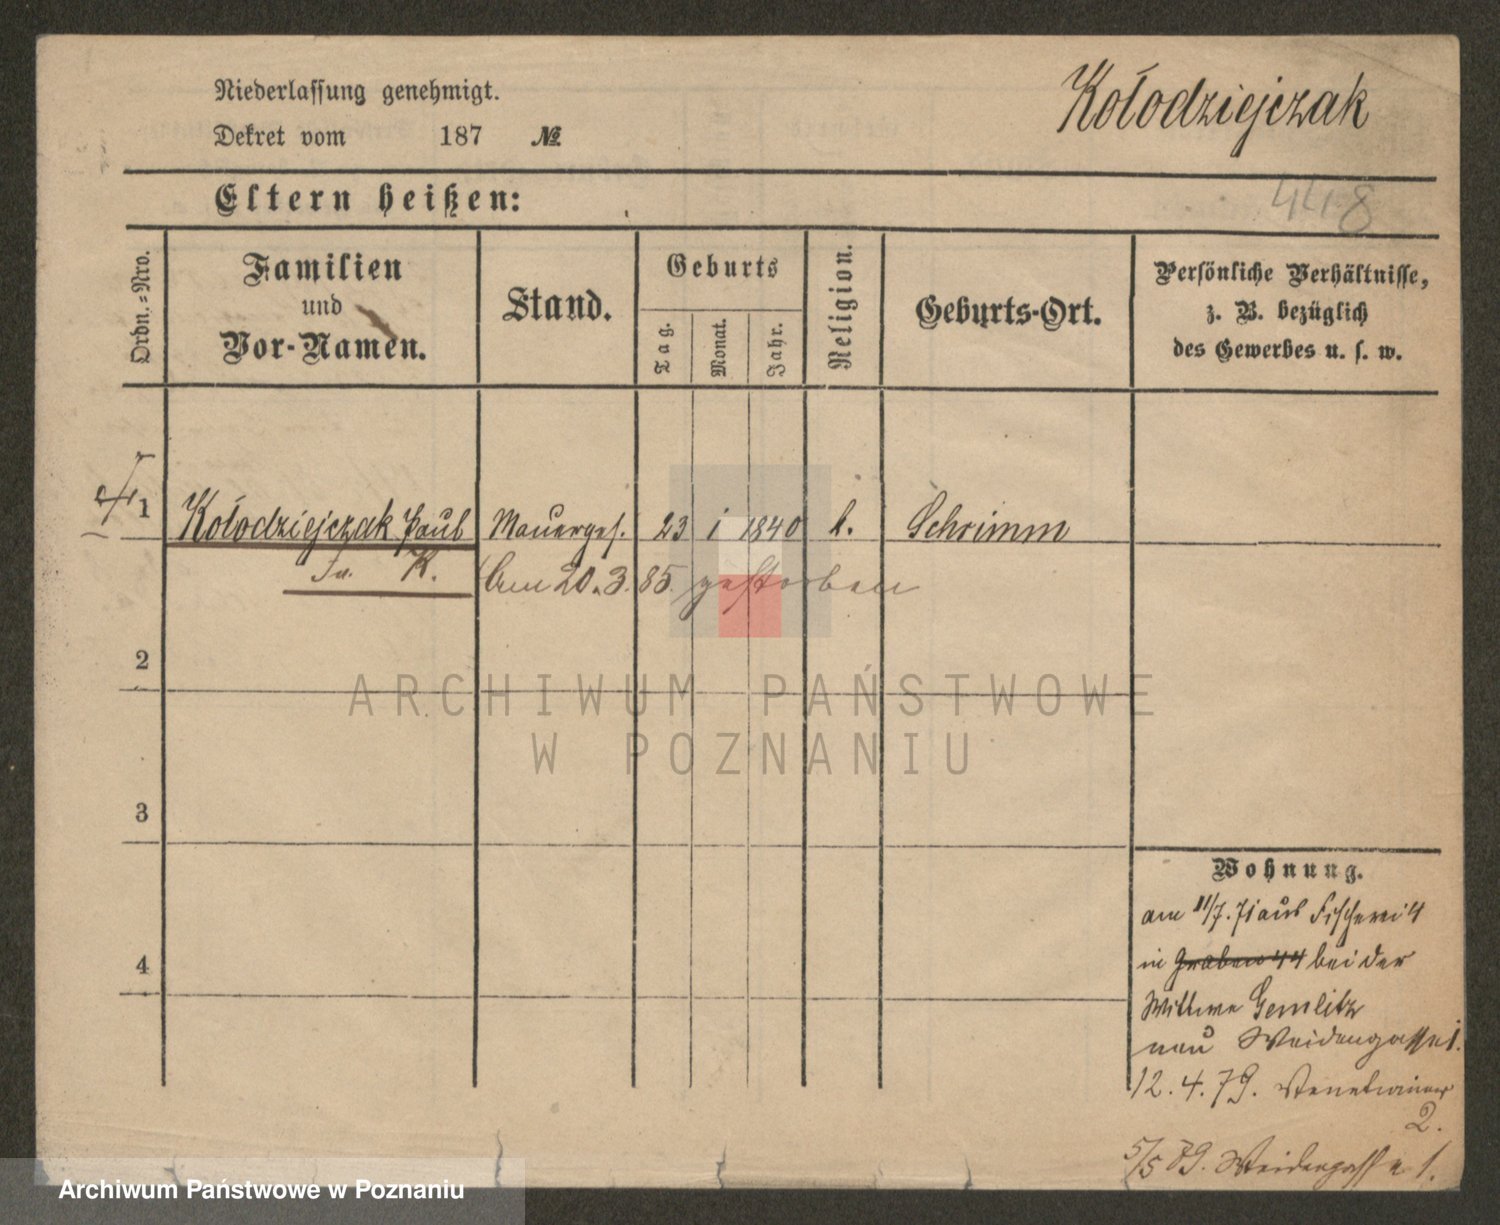 Niederlassung genehmigt.
Kołodziejczak
Dekret vom 187 №
448
Eltern heißen:
Ordn.-Nro.
Familien
und
Vor-Namen.
Stand.
Geburts
Tag.
Monat.
Jahr.
Religion.
Geburts-Ort.
Persönliche Verhältnisse,
z. B. bezüglich
des Gewerbes u. s. w.
1 Kołodziejczak Paul Mauerges. 23 1 1840 k. Schrimm
K. Am 20.3.85. gestorben
2
3
4
ARCHIWUM PAŃSTWOWE
W POZNANIU
Wohnung.
am 11/7.71 aus Fischerei 4
in Graben 44 bei der
Wittwe Gemlitz
neu Weidengasse 1.
12.4.79. Venetianer
2.
5/5 79. Weidengasse 1.
Archiwum Państwowe w Poznaniu